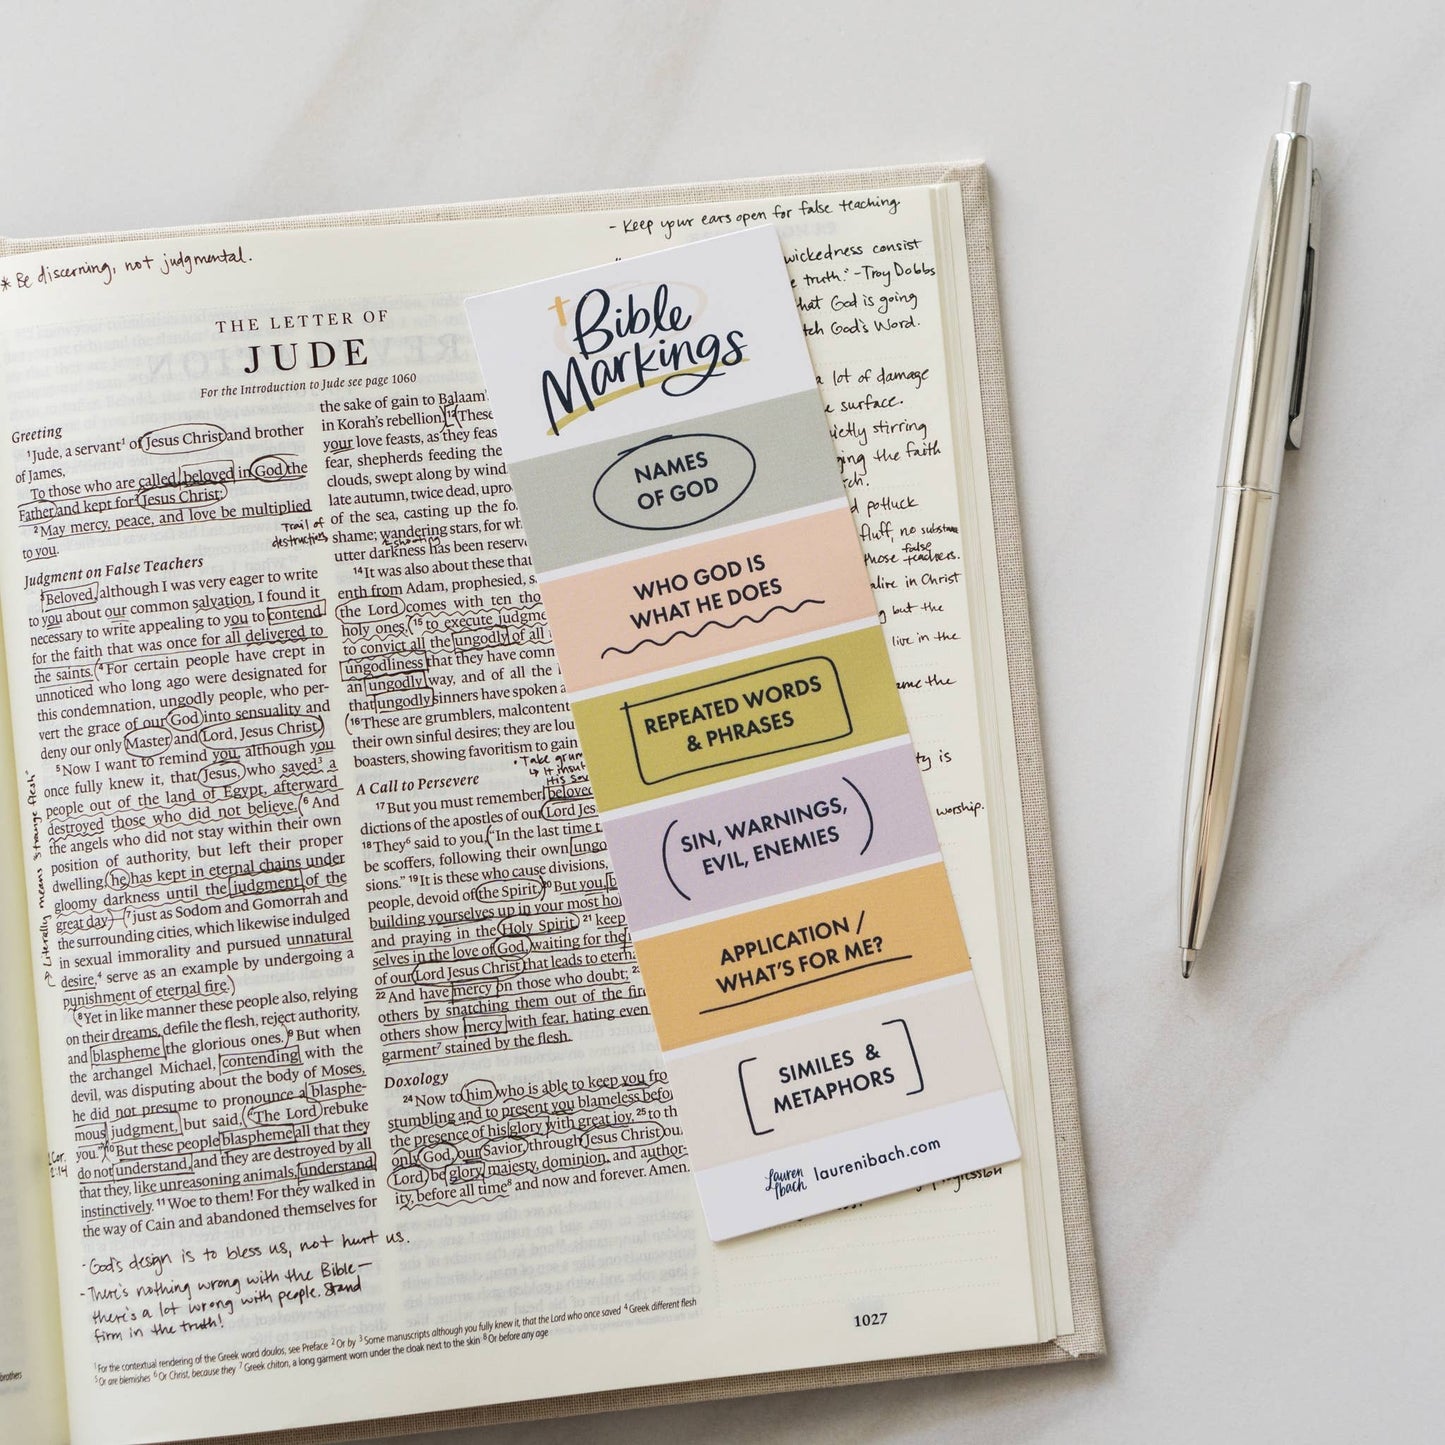 * Be discerning, not judgmental.
- Keep your ears open for false teaching
THE LETTER OF
JUDE
For the Introduction to Jude see page 1060
Greeting
1Jude, a servant1 of Jesus Christ and brother
of James.
To those who are called, beloved in God the
Father and kept for Jesus Christ:
2May mercy, peace, and love be multiplied
to you.
Judgment on False Teachers
3Beloved, although I was very eager to write
to you about our common salvation, I found it
necessary to write appealing to you to contend
for the faith that was once for all delivered to
the saints. 4For certain people have crept in
unnoticed who long ago were designated for
this condemnation, ungodly people, who per-
vert the grace of our God into sensuality and
deny our only Master and Lord, Jesus Christ.
5Now I want to remind you, although you
once fully knew it, that Jesus, who saved3 a
people out of the land of Egypt, afterward
destroyed those who did not believe. 6And
the angels who did not stay within their own
position of authority, but left their proper
dwelling, he has kept in eternal chains under
gloomy darkness until the judgment of the
great day— 7just as Sodom and Gomorrah and
the surrounding cities, which likewise indulged
in sexual immorality and pursued unnatural
desire,4 serve as an example by undergoing a
punishment of eternal fire.
8Yet in like manner these people also, relying
on their dreams, defile the flesh, reject authority,
and blaspheme the glorious ones. 9But when
the archangel Michael, contending with the
devil, was disputing about the body of Moses,
he did not presume to pronounce a blasphe-
mous judgment, but said, "The Lord rebuke
you." 10But these people blaspheme all that they
do not understand, and they are destroyed by all
that they, like unreasoning animals, understand
instinctively. 11Woe to them! For they walked in
the way of Cain and abandoned themselves for
→ Literally means "strange flesh"
1 Cor.
2:14
the sake of gain to Balaam'
in Korah's rebellion. 12These
your love feasts, as they feas
fear, shepherds feeding the
clouds, swept along by wind
late autumn, twice dead, upro
of the sea, casting up the fo
shame; wandering stars, for wh
Trail of
destruction
shooting
utter darkness has been reserv
14It was also about these that
enth from Adam, prophesied, s
the Lord comes with ten tho
holy ones, 15to execute judgme
to convict all the ungodly of all
ungodliness that they have comm
an ungodly way, and of all the
that ungodly sinners have spoken a
16These are grumblers, malcontent
their own sinful desires; they are lou
boasters, showing favoritism to gain
• Take grum
↳ It insul
His sov
A Call to Persevere
17But you must remember, beloved
dictions of the apostles of our Lord Jes
18They6 said to you, "In the last time t
be scoffers, following their own ungo
sions." 19It is these who cause divisions,
people, devoid of the Spirit. 20But you, b
building yourselves up in your most ho
and praying in the Holy Spirit, 21keep
selves in the love of God, waiting for the
of our Lord Jesus Christ that leads to etern
22And have mercy on those who doubt; 23
others by snatching them out of the fir
others show mercy with fear, hating even
garment7 stained by the flesh.
Doxology
24Now to him who is able to keep you fro
stumbling and to present you blameless befo
the presence of his glory with great joy, 25to th
only God, our Savior, through Jesus Christ ou
Lord, be glory, majesty, dominion, and author-
ity, before all time8 and now and forever. Amen.
wickedness consist
e truth." - Troy Dobbs
hat God is going
God's Word.
a lot of damage
surface.
ietly stirring
the faith
potluck
fluff, no substance
false
teachers.
alive in Christ
but the
live in the
the
is
worship.
† Bible
Markings
NAMES
OF GOD
WHO GOD IS
WHAT HE DOES
REPEATED WORDS
& PHRASES
(SIN, WARNINGS,
EVIL, ENEMIES)
APPLICATION /
WHAT'S FOR ME?
[SIMILES &
METAPHORS]
Lauren
Ibach
laurenibach.com
- God's design is to bless us, not hurt us.
- There's nothing wrong with the Bible—
there's a lot wrong with people. Stand
firm in the truth!
1For the contextual rendering of the Greek word doulos, see Preface 2Or by 3Some manuscripts although you fully knew it, that the Lord who once saved 4Greek different flesh
5Or are blemishes 6Or Christ, because they 7Greek chiton, a long garment worn under the cloak next to the skin 8Or before any age
1027